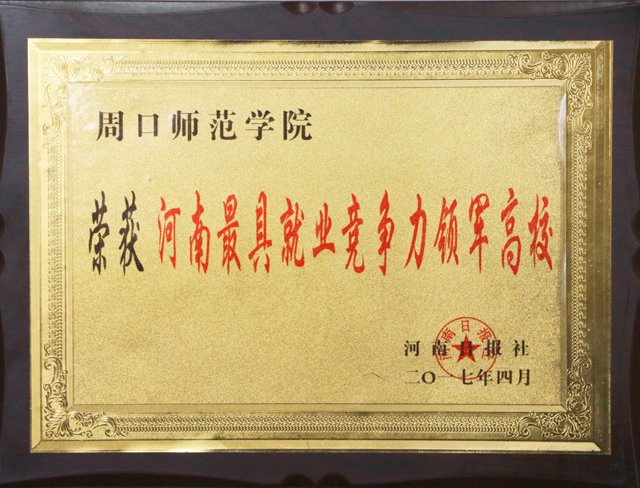 周口师范学院
荣获 河南最具就业竞争力领军高校
河南日报社
二〇一七年四月